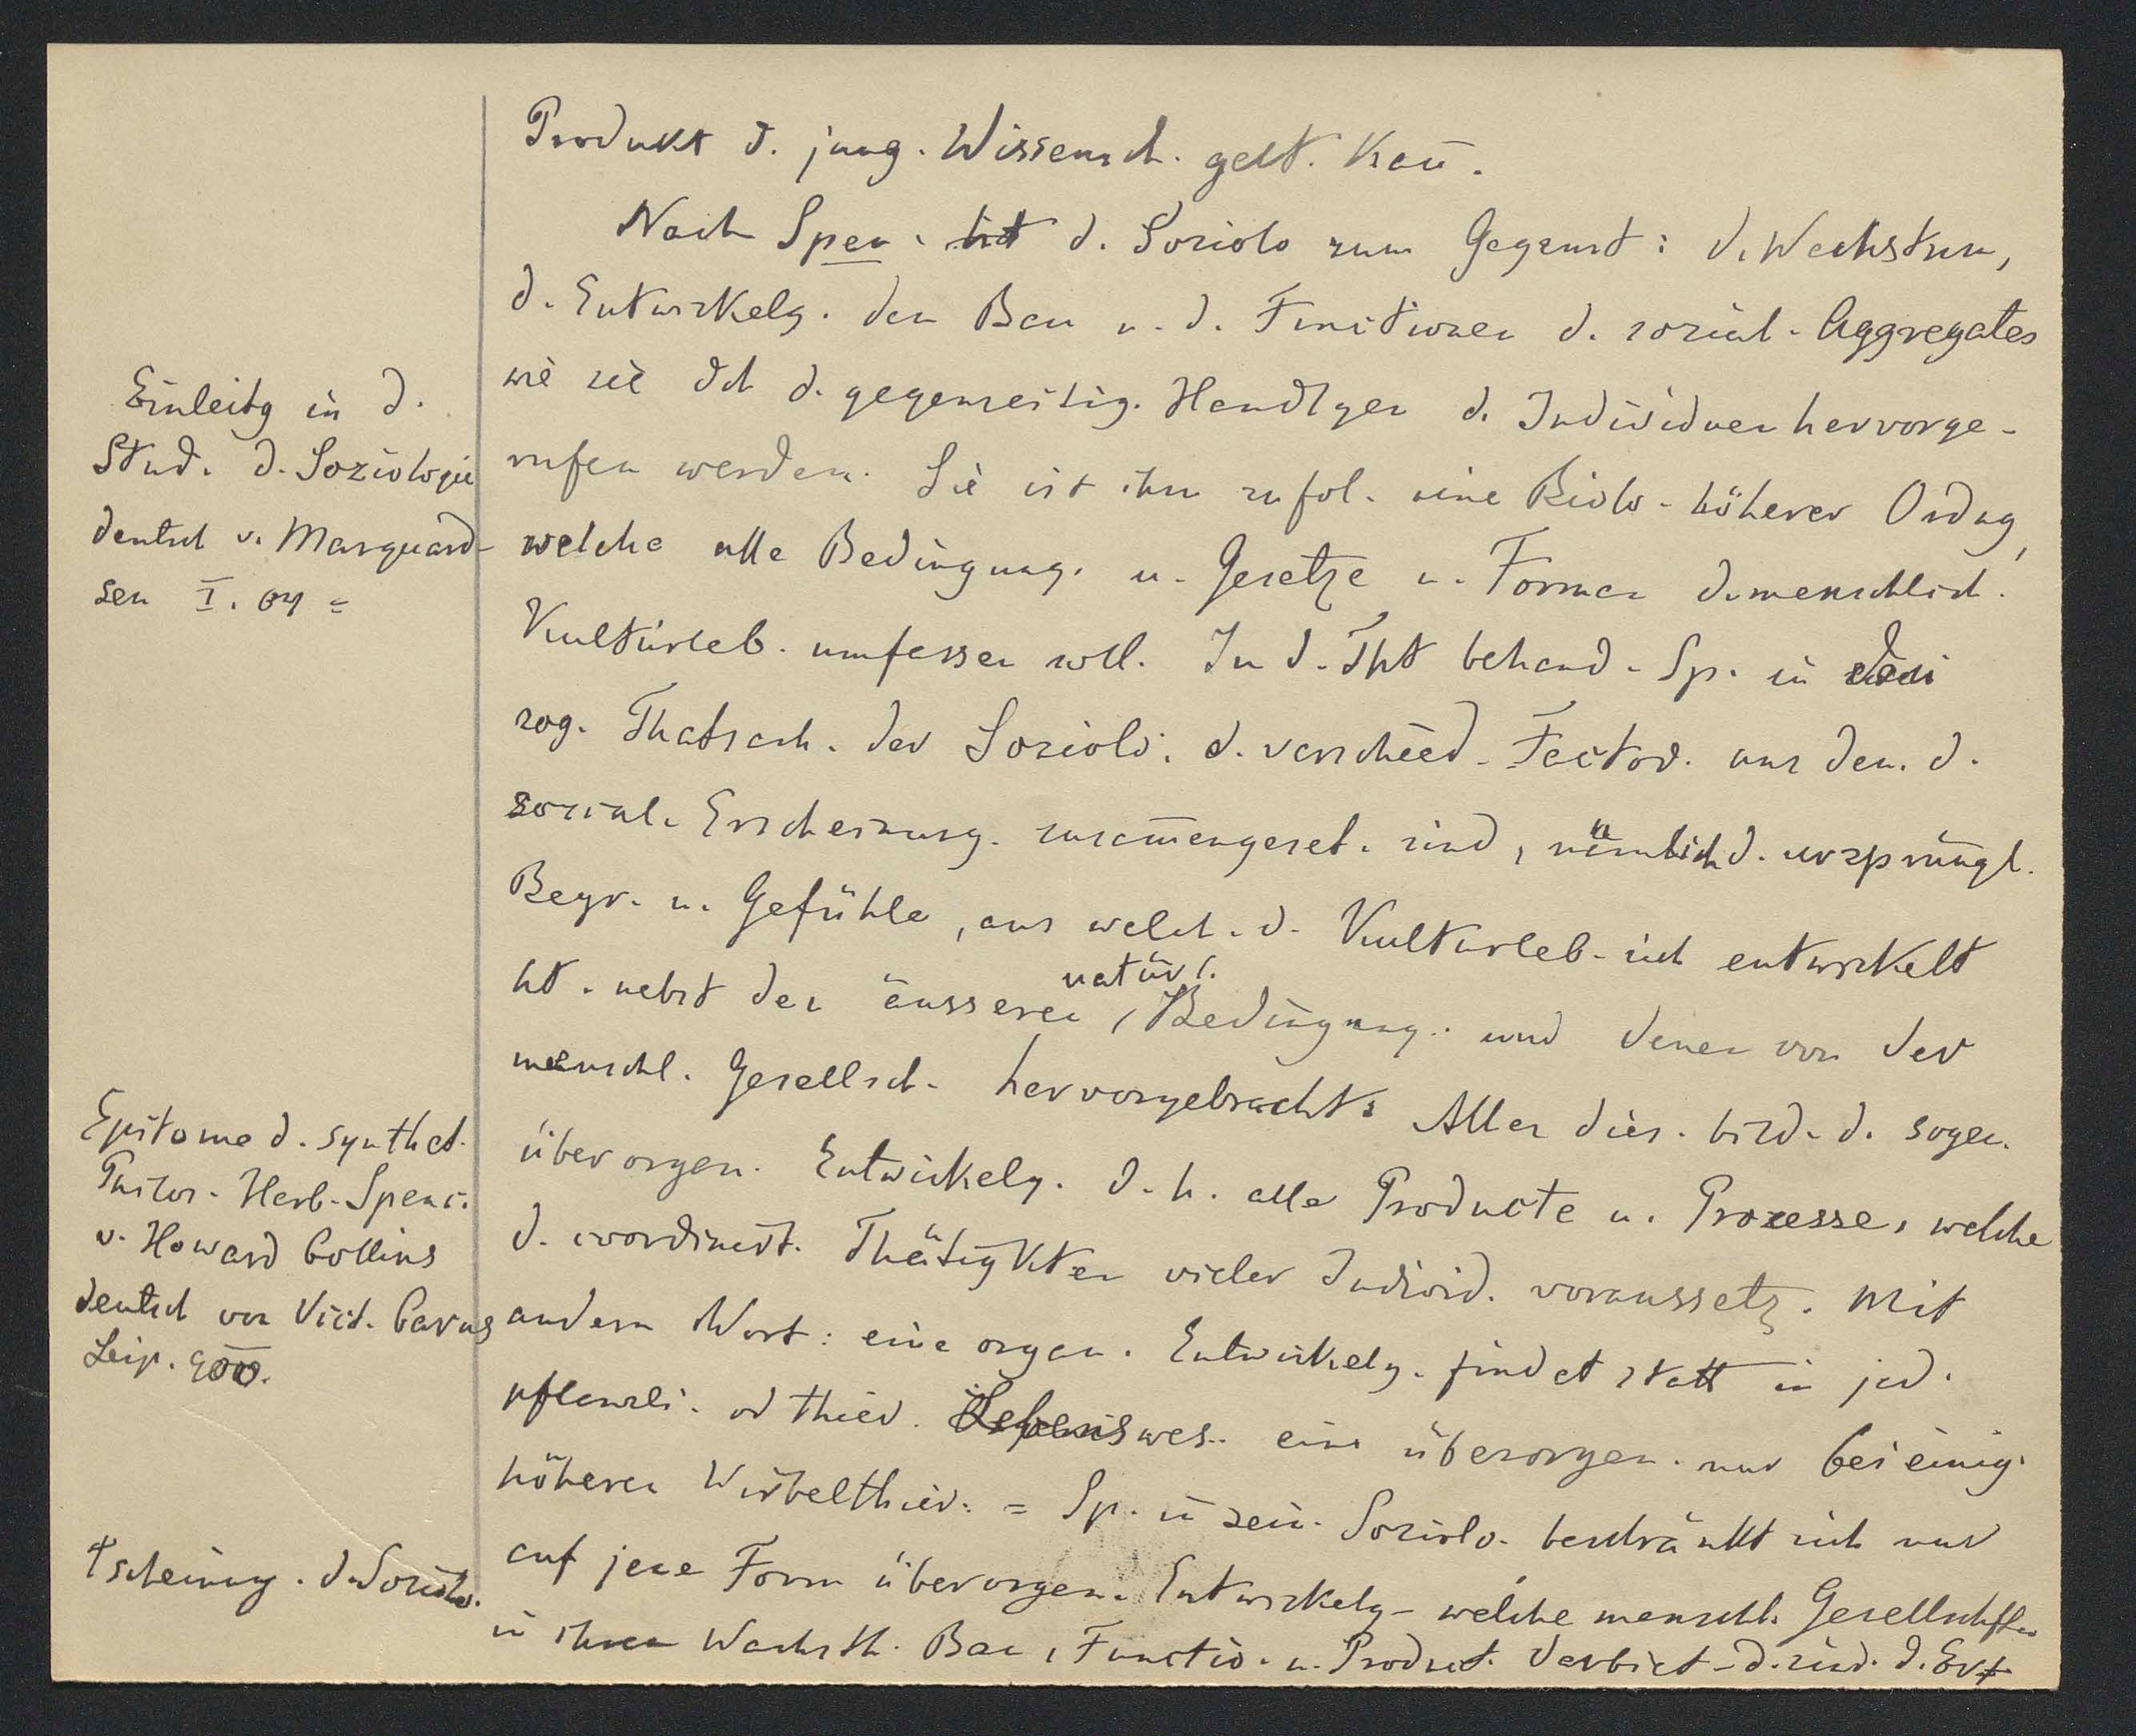 Produkt d. jung. Wissensch. gelt. kan̄.
Nach Spen. hat d. Soziolo zum Gegenst: d. Wachstum,
d. Entwickelg. den Bau u. d. Functionen d. sozial. Aggregates
wie sie dch d. gegenseitig. Handlgen d. Individuen hervorge-
rufen werden. Sie ist ihm zufol. eine Biolo. höherer Ordng,
welche alle Bedingung. u. Gesetze u. Formen d. menschlich.
Kulturleb. umfassen soll. In d. That behand. Sp. in den
sog. Thatsach. der Soziolo. d. verschied. Factor. aus den. d.
sozial. Erscheinung. zusam̄engeset. sind, nämlich d. ursprüngl.
Begr. u. Gefühle, aus welch. d. Kulturleb. sich entwickelt
ht. nebst den äusseren, natürl. Bedingung. und denen von der
menschl. Gesellsch. hervorgebracht. Alles dies. bild. d. sogen.
überorgan. Entwickelg. d. h. alle Producte u. Prozesse, welche
d. coordinirt. Thätigkten vieler Individ. voraussetz. Mit
andern Wort: eine organ. Entwickelg. findet statt in jed.
pflanzli. od thier. Lebenswes. eine überorgan. nur bei einig.
höheren Wirbelthier. = Sp. in sein. Soziolo. beschränkt sich nur
auf jene Form überorgan. Entwickelg- welche menschl. Gesellschften
in ihren Wachsth. Bau, Functio. u. Product. darbiet. d. sind. d. Er†
Einleitg in d.
Stud. d. Soziologie
deutsch v. Marquard-
sen I. 04 =
Epitome d. synthet.
Philos. Herb. Spenc.
v. Howard Collins
deutsch von Vict. Carus
Leip. 900.
†scheinung. d. Soziolo.